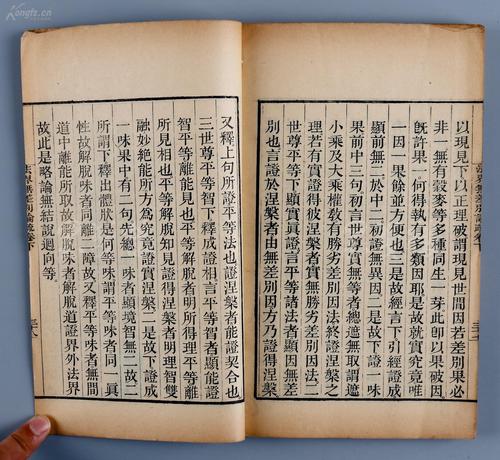 以現見下以正理破謂現見世間因若差別果必
非一無有穀麥等多種同生一芽此卽以果破因
旣許果一何得執有多類因耶是故就實究竟唯
一因一果餘並方便也三是故經言下引經證成
顯前無二於中二初無異因二是故下證一味
果前中三句初言世尊實無等者總遮無前謂遮
小乘及大乘權教有勝劣差別因法終證涅槃之
理若有實證得彼涅槃者實無勝劣差別因法二
世尊平等下顯其正因言平等諸法者顯因無差
別也言證於涅槃者由無差別因方乃證得涅槃
又釋上句所證平等法也證涅槃者能證契合也
三世尊平等智下釋成證相言平等智者顯能證
智平等離能見也平等解脫者明所得理平等離
所見相也平等解脫知見證得涅槃者明理智雙
融妙絶能所方爲究竟證實涅槃二是故下證成
一味果中有二句先總一味者顯境智無二故二
所謂下釋出體狀是何等味謂平等味者同一眞
性故解脫味者同離二障故又釋平等味者無間
道中離能所取故解脫味者解脫道證界外法界
故此是略論無結說迴向等
法界無差別論疏卷下